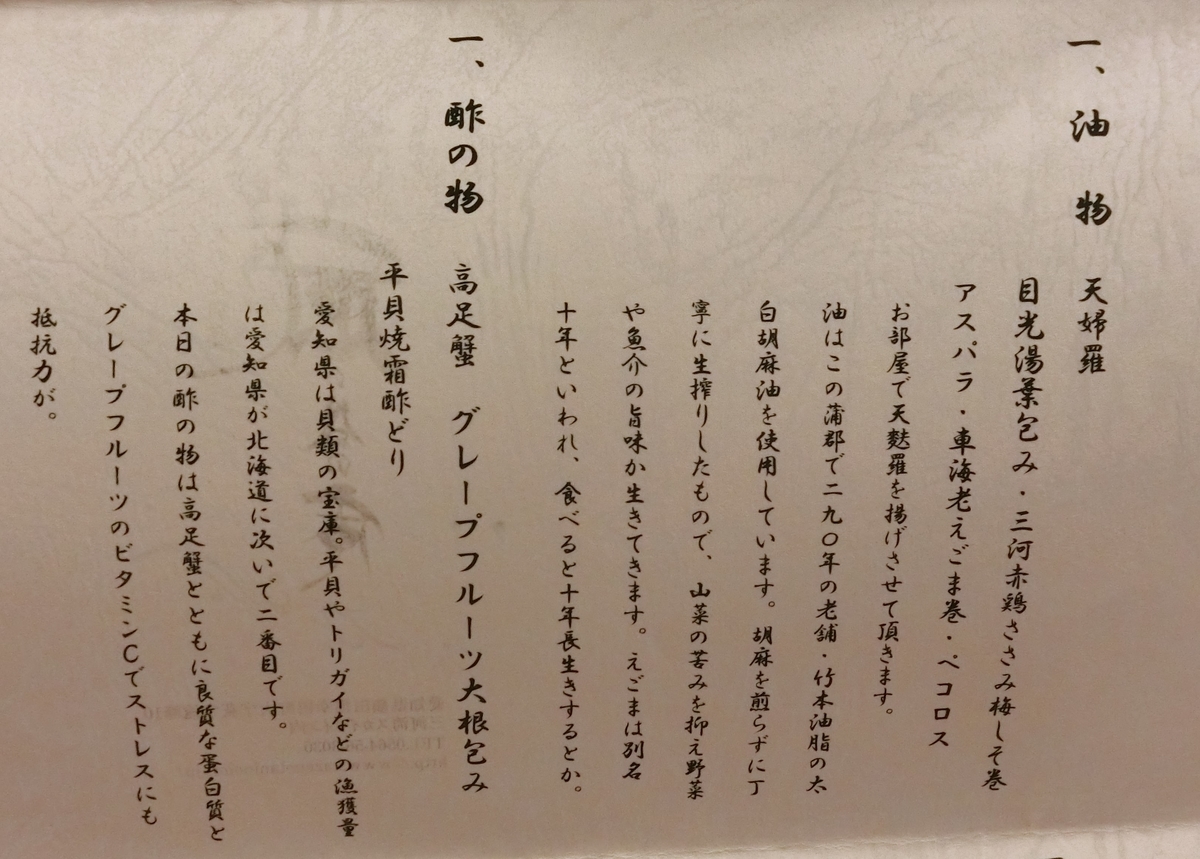 一、油物 天婦羅
目光湯葉包み・三河赤鶏ささみ梅しそ巻
アスパラ・車海老えごま巻・ペコロス
お部屋で天麩羅を揚げさせて頂きます。
油はこの蒲郡で二九〇年の老舗・竹本油脂の太
白胡麻油を使用しています。胡麻を煎らずに丁
寧に生搾りしたもので、山菜の苦みを抑え野菜
や魚介の旨味か生きてきます。えごまは別名
十年といわれ、食べると十年長生きするとか。
一、酢の物 高足蟹 グレープフルーツ大根包み
平貝焼霜酢どり
愛知県は貝類の宝庫。平貝やトリガイなどの漁獲量
は愛知県が北海道に次いで二番目です。
本日の酢の物は高足蟹とともに良質な蛋白質と
グレープフルーツのビタミンCでストレスにも
抵抗力が。